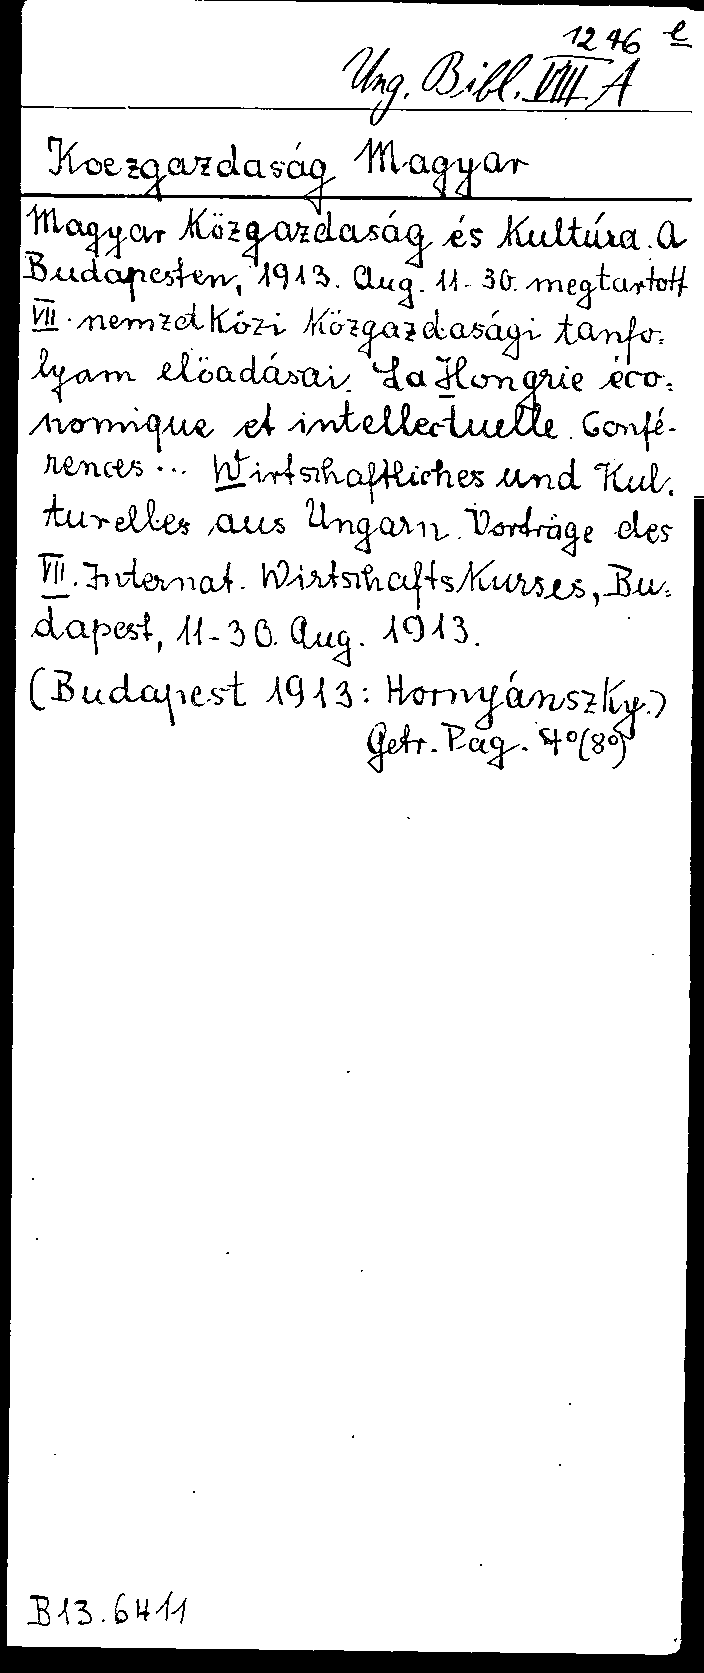 1246 e
Ung. Bibl. VIII A
Koezgazdaság Magyar
Magyar Közgazdaság és Kultúra. A
Budapesten, 1913. Aug. 11-30. megtartott
VII. nemzetközi Közgazdasági tanfo-
lyam elöadásai. La Hongrie éco-
nomique et intellectuelle. Confé-
rences... Wirtschaftliches und Kul-
turelles aus Ungarn. Vorträge des
VII. Internat. Wirtschaftskurses, Bu-
dapest, 11-30. Aug. 1913.
(Budapest 1913: Hornyánszky.)
Getr. Pag. 4°(8°)
B13.6411